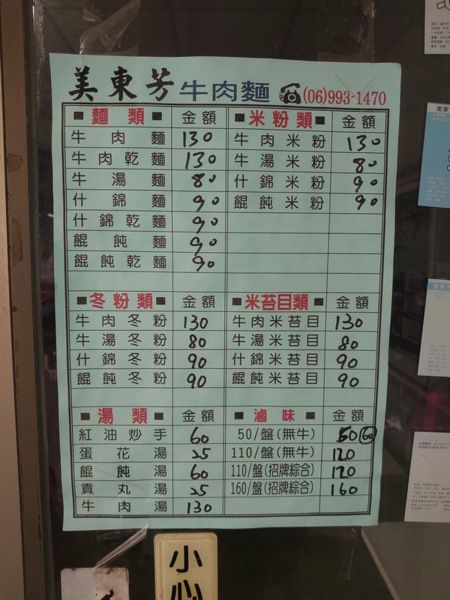 美東芳牛肉麵 ☎(06)993-1470
■麵類■ 金額 ■米粉類■ 金額
牛肉麵 130 牛肉米粉 130
牛肉乾麵 130 牛湯米粉 80
牛湯麵 80 什錦米粉 90
什錦麵 90 餛飩米粉 90
什錦乾麵 90
餛飩麵 90
餛飩乾麵 90
■冬粉類■ 金額 ■米苔目類■ 金額
牛肉冬粉 130 牛肉米苔目 130
牛湯冬粉 80 牛湯米苔目 80
什錦冬粉 90 什錦米苔目 90
餛飩冬粉 90 餛飩米苔目 90
■湯類■ 金額 ■滷味■ 金額
紅油炒手 60 50/盤(無牛) 50 60
蛋花湯 25 110/盤(無牛) 120
餛飩湯 60 110/盤(招牌綜合) 120
貢丸湯 25 160/盤(招牌綜合) 160
牛肉湯 130
小心